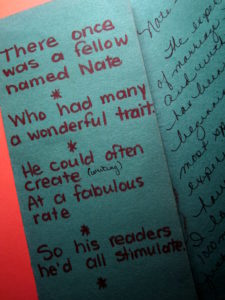 There once
was a fellow
named Nate
*
Who had many
a wonderful trait.
*
He could often
create (writing)
At a fabulous
rate
*
So his readers
he'd all stimulate.
*
Nate
The expe
of marriag
and
has bee
beginn
most
exper
hav
I